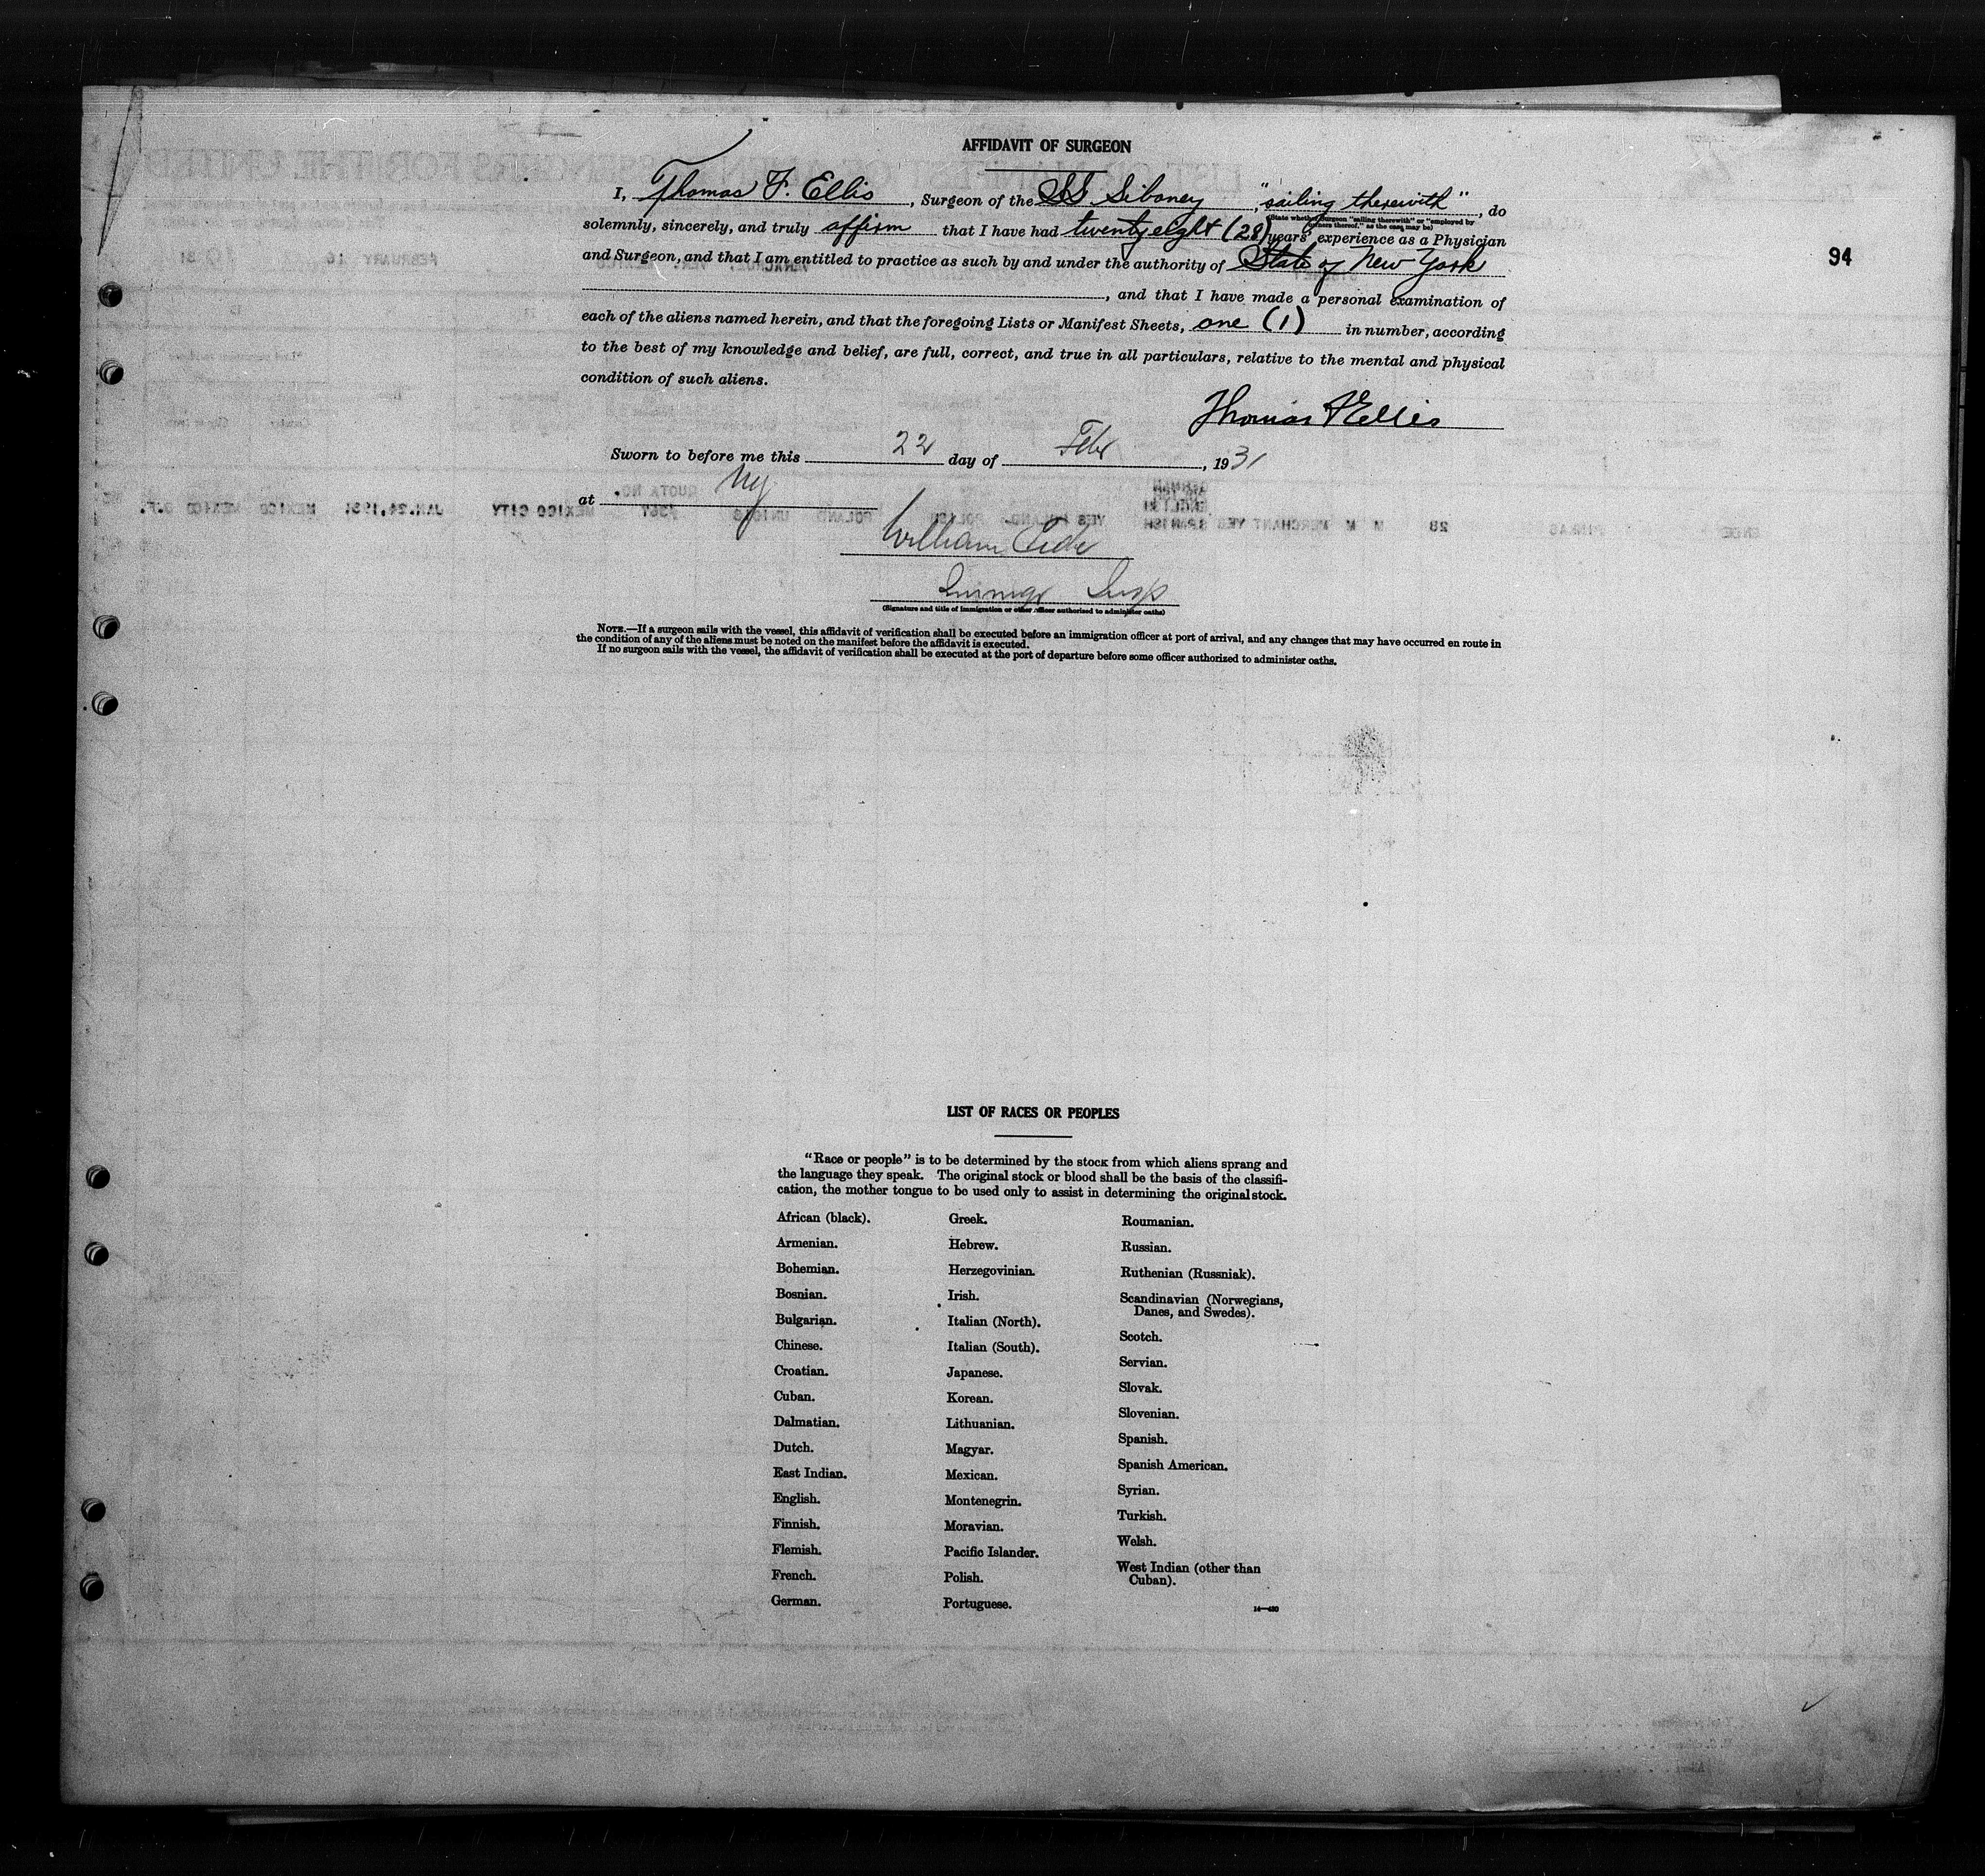 AFFIDAVIT OF SURGEON
I, Thomas F. Ellis, Surgeon of the SS Siboney, "sailing therewith", do
(State whether Surgeon "sailing therewith" or "employed by
owners thereof," as the case may be)
solemnly, sincerely, and truly affirm that I have had twenty eight (28) years' experience as a Physician
and Surgeon, and that I am entitled to practice as such by and under the authority of State of New York
94
, and that I have made a personal examination of
each of the aliens named herein, and that the foregoing Lists or Manifest Sheets, one (1) in number, according
to the best of my knowledge and belief, are full, correct, and true in all particulars, relative to the mental and physical
condition of such aliens.
Thomas F Ellis
Sworn to before me this 22 day of Feb, 1931
at NY
William
Immigr Insp
(Signature and title of immigration or other officer authorized to administer oaths)
NOTE.—If a surgeon sails with the vessel, this affidavit of verification shall be executed before an immigration officer at port of arrival, and any changes that may have occurred en route in
the condition of any of the aliens must be noted on the manifest before the affidavit is executed.
If no surgeon sails with the vessel, the affidavit of verification shall be executed at the port of departure before some officer authorized to administer oaths.
LIST OF RACES OR PEOPLES
"Race or people" is to be determined by the stock from which aliens sprang and
the language they speak. The original stock or blood shall be the basis of the classifi-
cation, the mother tongue to be used only to assist in determining the original stock.
African (black).
Armenian.
Bohemian.
Bosnian.
Bulgarian.
Chinese.
Croatian.
Cuban.
Dalmatian.
Dutch.
East Indian.
English.
Finnish.
Flemish.
French.
German.
Greek.
Hebrew.
Herzegovinian.
Irish.
Italian (North).
Italian (South).
Japanese.
Korean.
Lithuanian.
Magyar.
Mexican.
Montenegrin.
Moravian.
Pacific Islander.
Polish.
Portuguese.
Roumanian.
Russian.
Ruthenian (Russniak).
Scandinavian (Norwegians,
Danes, and Swedes).
Scotch.
Servian.
Slovak.
Slovenian.
Spanish.
Spanish American.
Syrian.
Turkish.
Welsh.
West Indian (other than
Cuban).
14—430